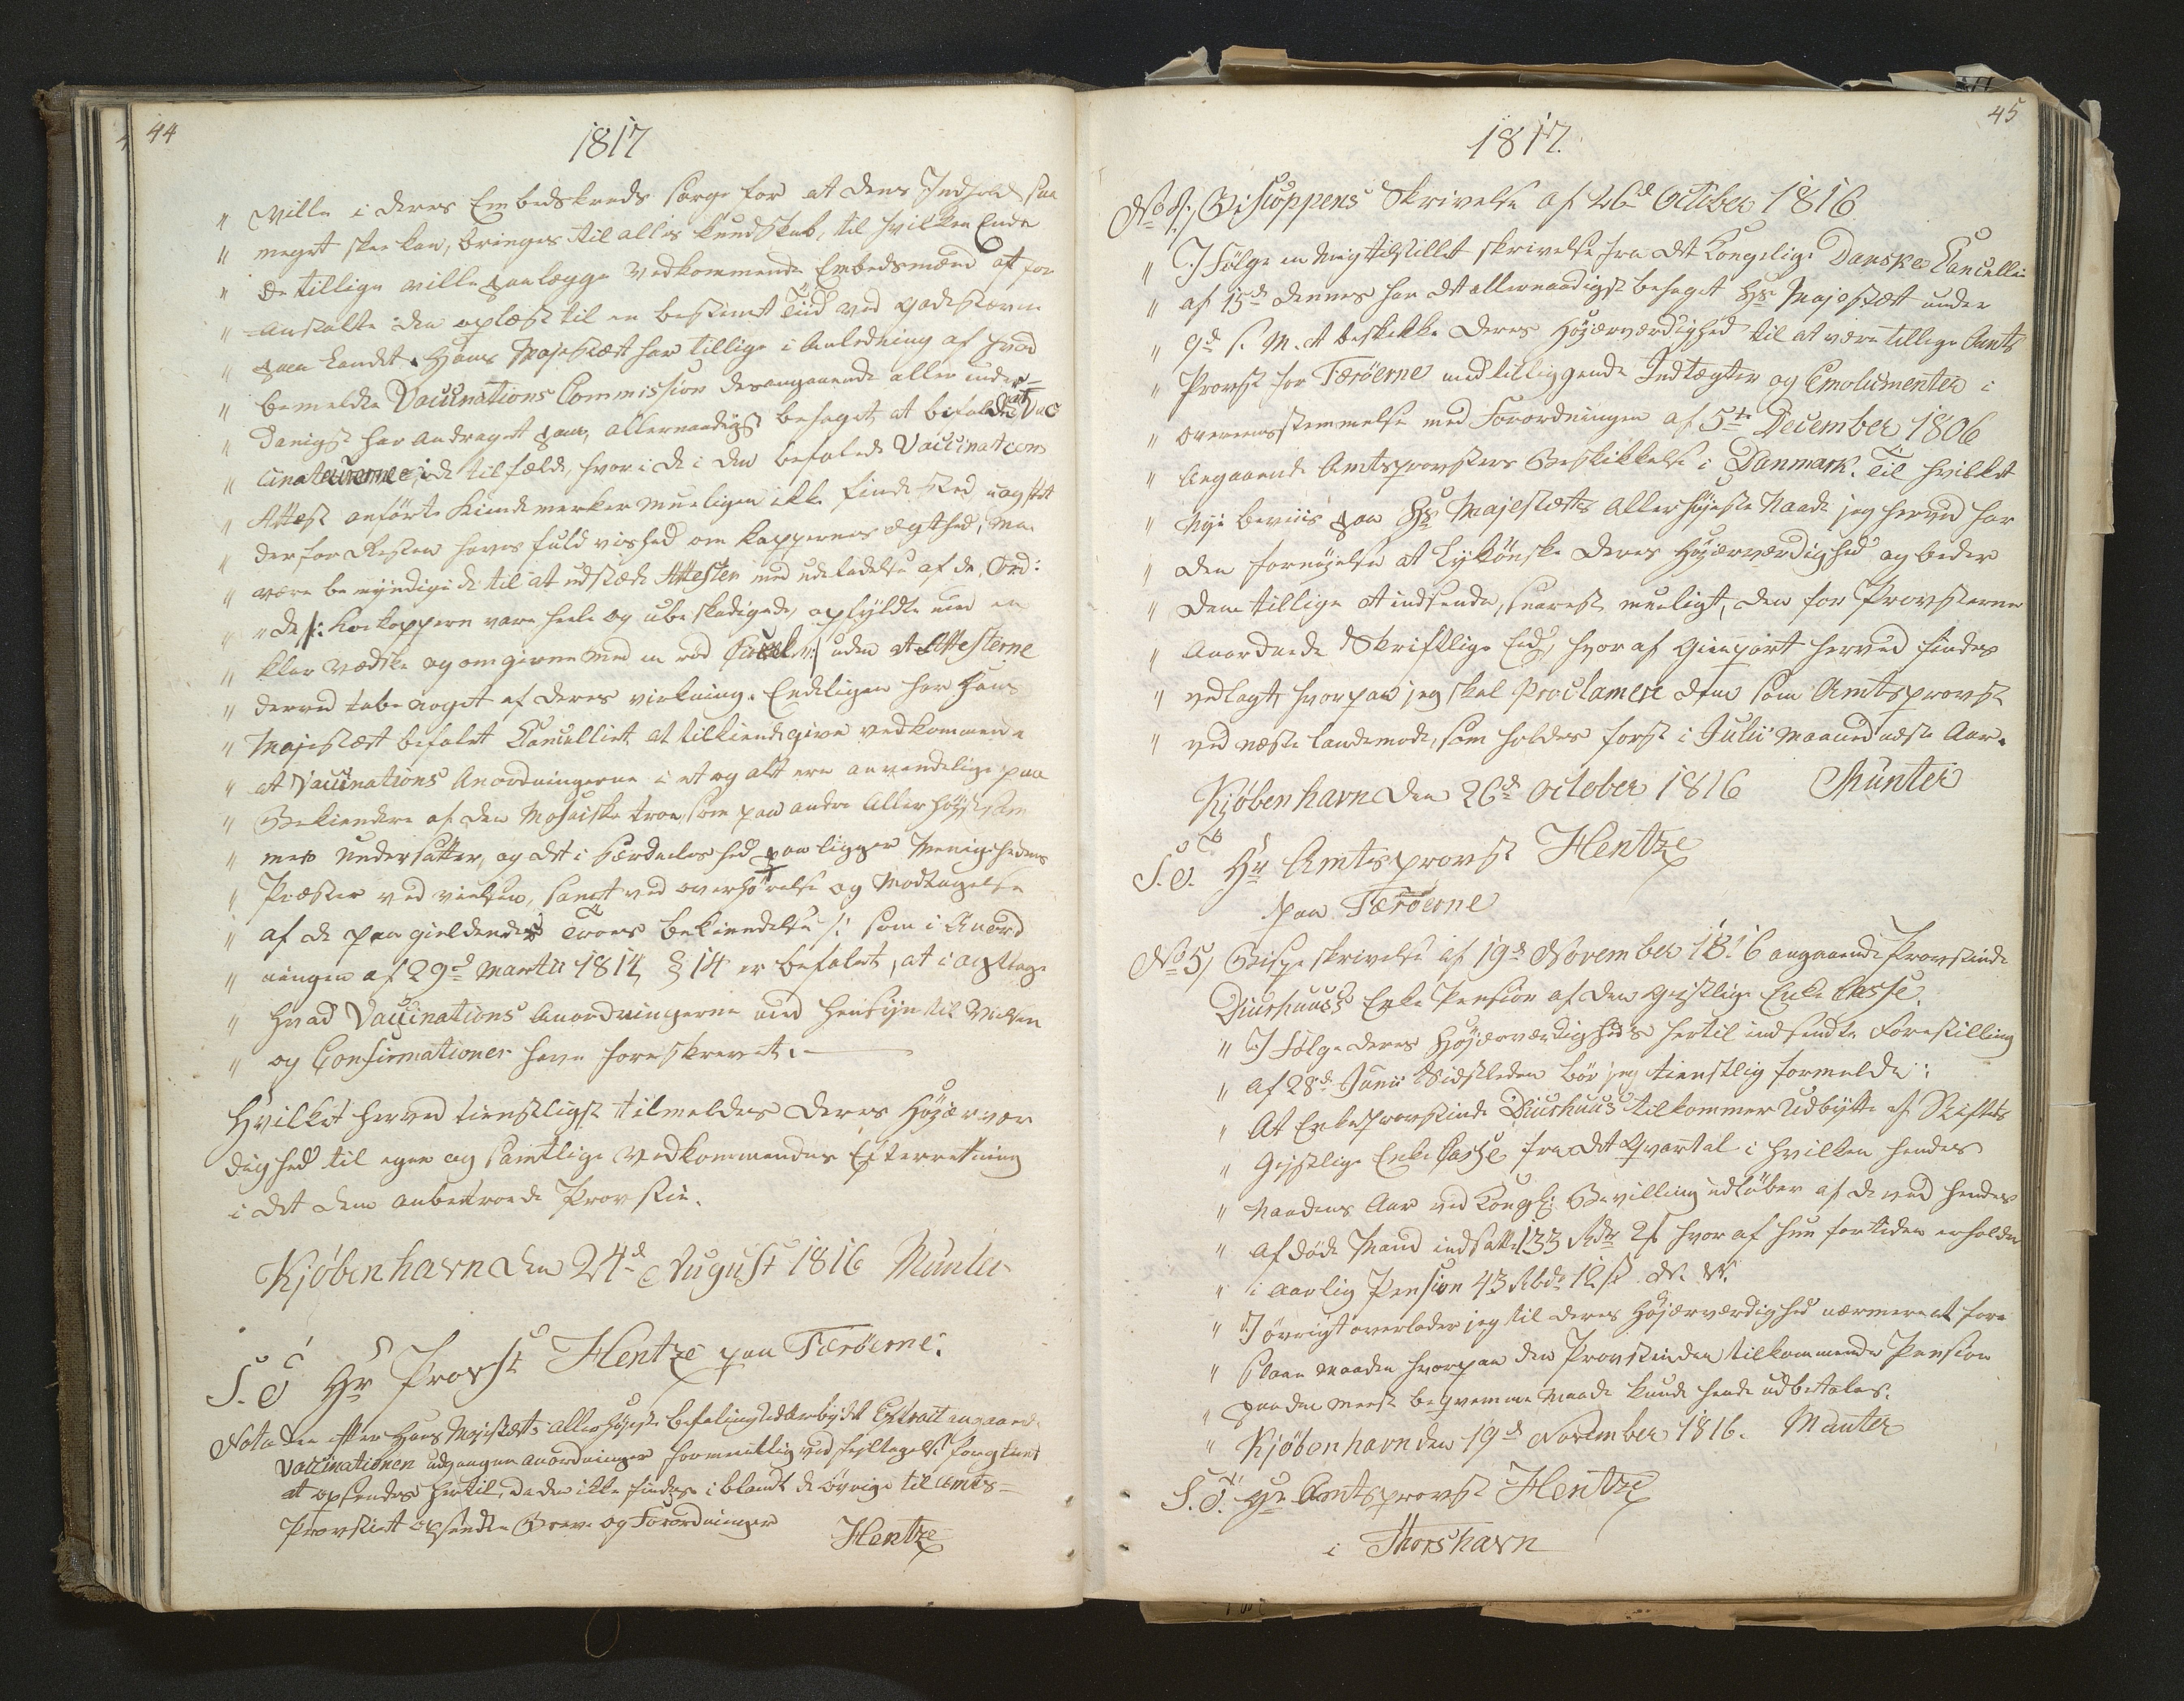 44
1817
" ville i deres Embedskreds sørge for at dens Indhold saa
" meget skee kan, bringes til alles kundskab, til hvilken Ende
" De tillige ville paalægge vedkommende Embedsmænd at for
" anstalte den oplæst til en bestemt Tiid ved Gadestævne
" paa Landet. Hans Majestæt har tillige i Anledning af hvad
" bemeldte Vaccinations Commission desangaaende allerunder=
" danigst har andraget paa, allernaadigst behaget at befale at Vac
" cinateurerne, i de tilfælde, hvor i de i den befalede Vaccinations
" Attest anførte Kiendemerker mueligen ikke finde sted uagtet
" der for Resten haves fuld vished om koppernes ægthed, maa
" være bemyndigede til at udstæde Attester med udeladelse af de Ord:
" " de /: Koekopperne vare heele og ubeskadigede, opfyldte med en
" klar vædske og omgivne med en rød Cirkel :/ uden at Attesterne
" derved tabe noget af deres virkning. Endeligen har Hans
" Majestæt befalet Cancelliet at tilkiendegive vedkommende
" at Vaccinations Anordningerne i et og alt ere anvendelige paa
" Bekiendere af den Mosaiske troe, som paa andre Allerhøjstsam
" mes Undersatter, og det i Særdeleshed paaligger Menighedens
" Præster ved vielsen, samt ved overhørelse og Modtagelse
" af de paagieldendes Troes bekiendelse /: som i Anord
" ningen af 29d Martii 1814 § 14 er befalet, at iagttage
" hvad Vaccinations Anordningerne med Hensyn til Vielsen
" og Confirmationer have foreskrevet. —
Hvilket herved tienstligst tilmeldes Deres Højærvær
dighed til egen og samtlige Vedkommendes Efterretning
i det Dem anbetroede Provstie.
Kjøbenhavn den 24d August 1816 Münter
S. T Hr Provst Hentze paa Færøerne.
Nota Den efter Hans Majestæts allerhøjeste befaling udarbejdet Extract angaaende
Vaccinationen udgangne anordninger formeentlig ved fejltagelse forglemt
at opsendes hertil, da den ikke findes iblandt de øvrige til Amts=
Provstiet opsendte Breve og Forordninger
Hentze
45
1817.
No 4, Biscoppens Skrivelse af 26d October 1816
" I følge en mig tilstillet skrivelse fra det Kongelige Danske Cancellie
" af 15d dennes har det allernaadigst behaget Hs Majestæt under
" 9d s. M. at beskikke Deres Højærværdighed til at være tillige Amts
" Provst for Færøerne med tilliggende Indtægter og Emolumenter i
" overeensstemmelse med Forordningen af 5te December 1806
" Angaaende Amtsprovsters Beskikkelse i Danmark. Til hvilket
" nye beviis paa Hs Majestæts Allerhøjeste Naade jeg herved har
" den fornøjelse at Lykønske Deres Højærværdighed og beder
" Dem tillige at indsende, snarest mueligt, den for Provsterne
" Anordnede Skriftlige Eed, hvoraf Gienpart herved findes
" vedlagt, hvorpaa jeg skal Proclamere dem som Amtsprovst
" ved næste Landemode, som holdes først i Julii Maaned næste Aar.
Kjøbenhavn den 26d October 1816 Münter
S. T. Hr Amtsprovst Hentze
paa Færøerne
No 5, Bispe skrivelse af 19d November 1816 angaaende Provstinde
Djurhuus's Enke Pension af den geistlige Enke Casse.
" I følge Deres Højærværdigheds hertil indsendte Forestilling
" af 28d Junii Sidstleden bør jeg tienstlig formelde:
" At Enkeprovstinde Djurhuus tilkommer Udbytte af Stiftets
" Geistlige Enke Casse fra det Qvartal i hvilken hendes
" Naadens Aar ved Kongl: Bevilling udløber af de ved hendes
" afdøde Mand indsatte 133 Rdr 2 ſ hvoraf hun for tiden erholder
" i aarlig Pension 43 Rbd 12 ſ N. V.
" I øvrigt overlader jeg til Deres Højærværdighed nærmere at fore
" slaae maaden hvorpaa den Provstinden tilkommende Pension
" paa den meest beqvemme Maade kunde hende udbetales.
" Kjøbenhavn den 19d November 1816. Münter
S. T. Hr Amtsprovst Hentze
i Thorshavn